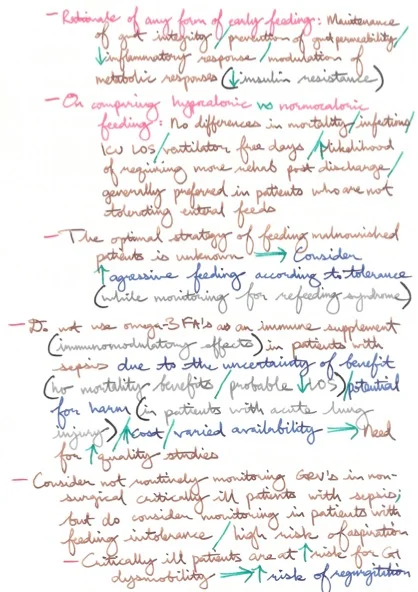 - Rationale of any form of early feeding: Maintenance
of gut integrity / prevention of gut permeability /
↓ inflammatory response / modulation of
metabolic responses (↓ insulin resistance)
- On comparing hypocaloric vs normocaloric
feeding: No differences in mortality / infections /
ICU LOS / ventilator free days / ↑ likelihood
of requiring more rehab post discharge /
generally preferred in patients who are not
tolerating enteral feeds
- The optimal strategy of feeding malnourished
patients is unknown → Consider
↑ agressive feeding according to tolerance
(while monitoring for refeeding syndrome)
- Do not use omega-3 FA's as an immune supplement
(immunomodulatory effects) in patients with
sepsis due to the uncertainty of benefit
(no mortality benefits / probable ↓ LOS) / potential
for harm (in patients with acute lung
injury) / ↑ cost / varied availability → Need
for ↑ quality studies
- Consider not routinely monitoring GRV's in non-
surgical critically ill patients with sepsis;
but do consider monitoring in patients with
feeding intolerance / high risk of aspiration
- Critically ill patients are at ↑ risk for GI
dysmobility → ↑ risk of regurgitition